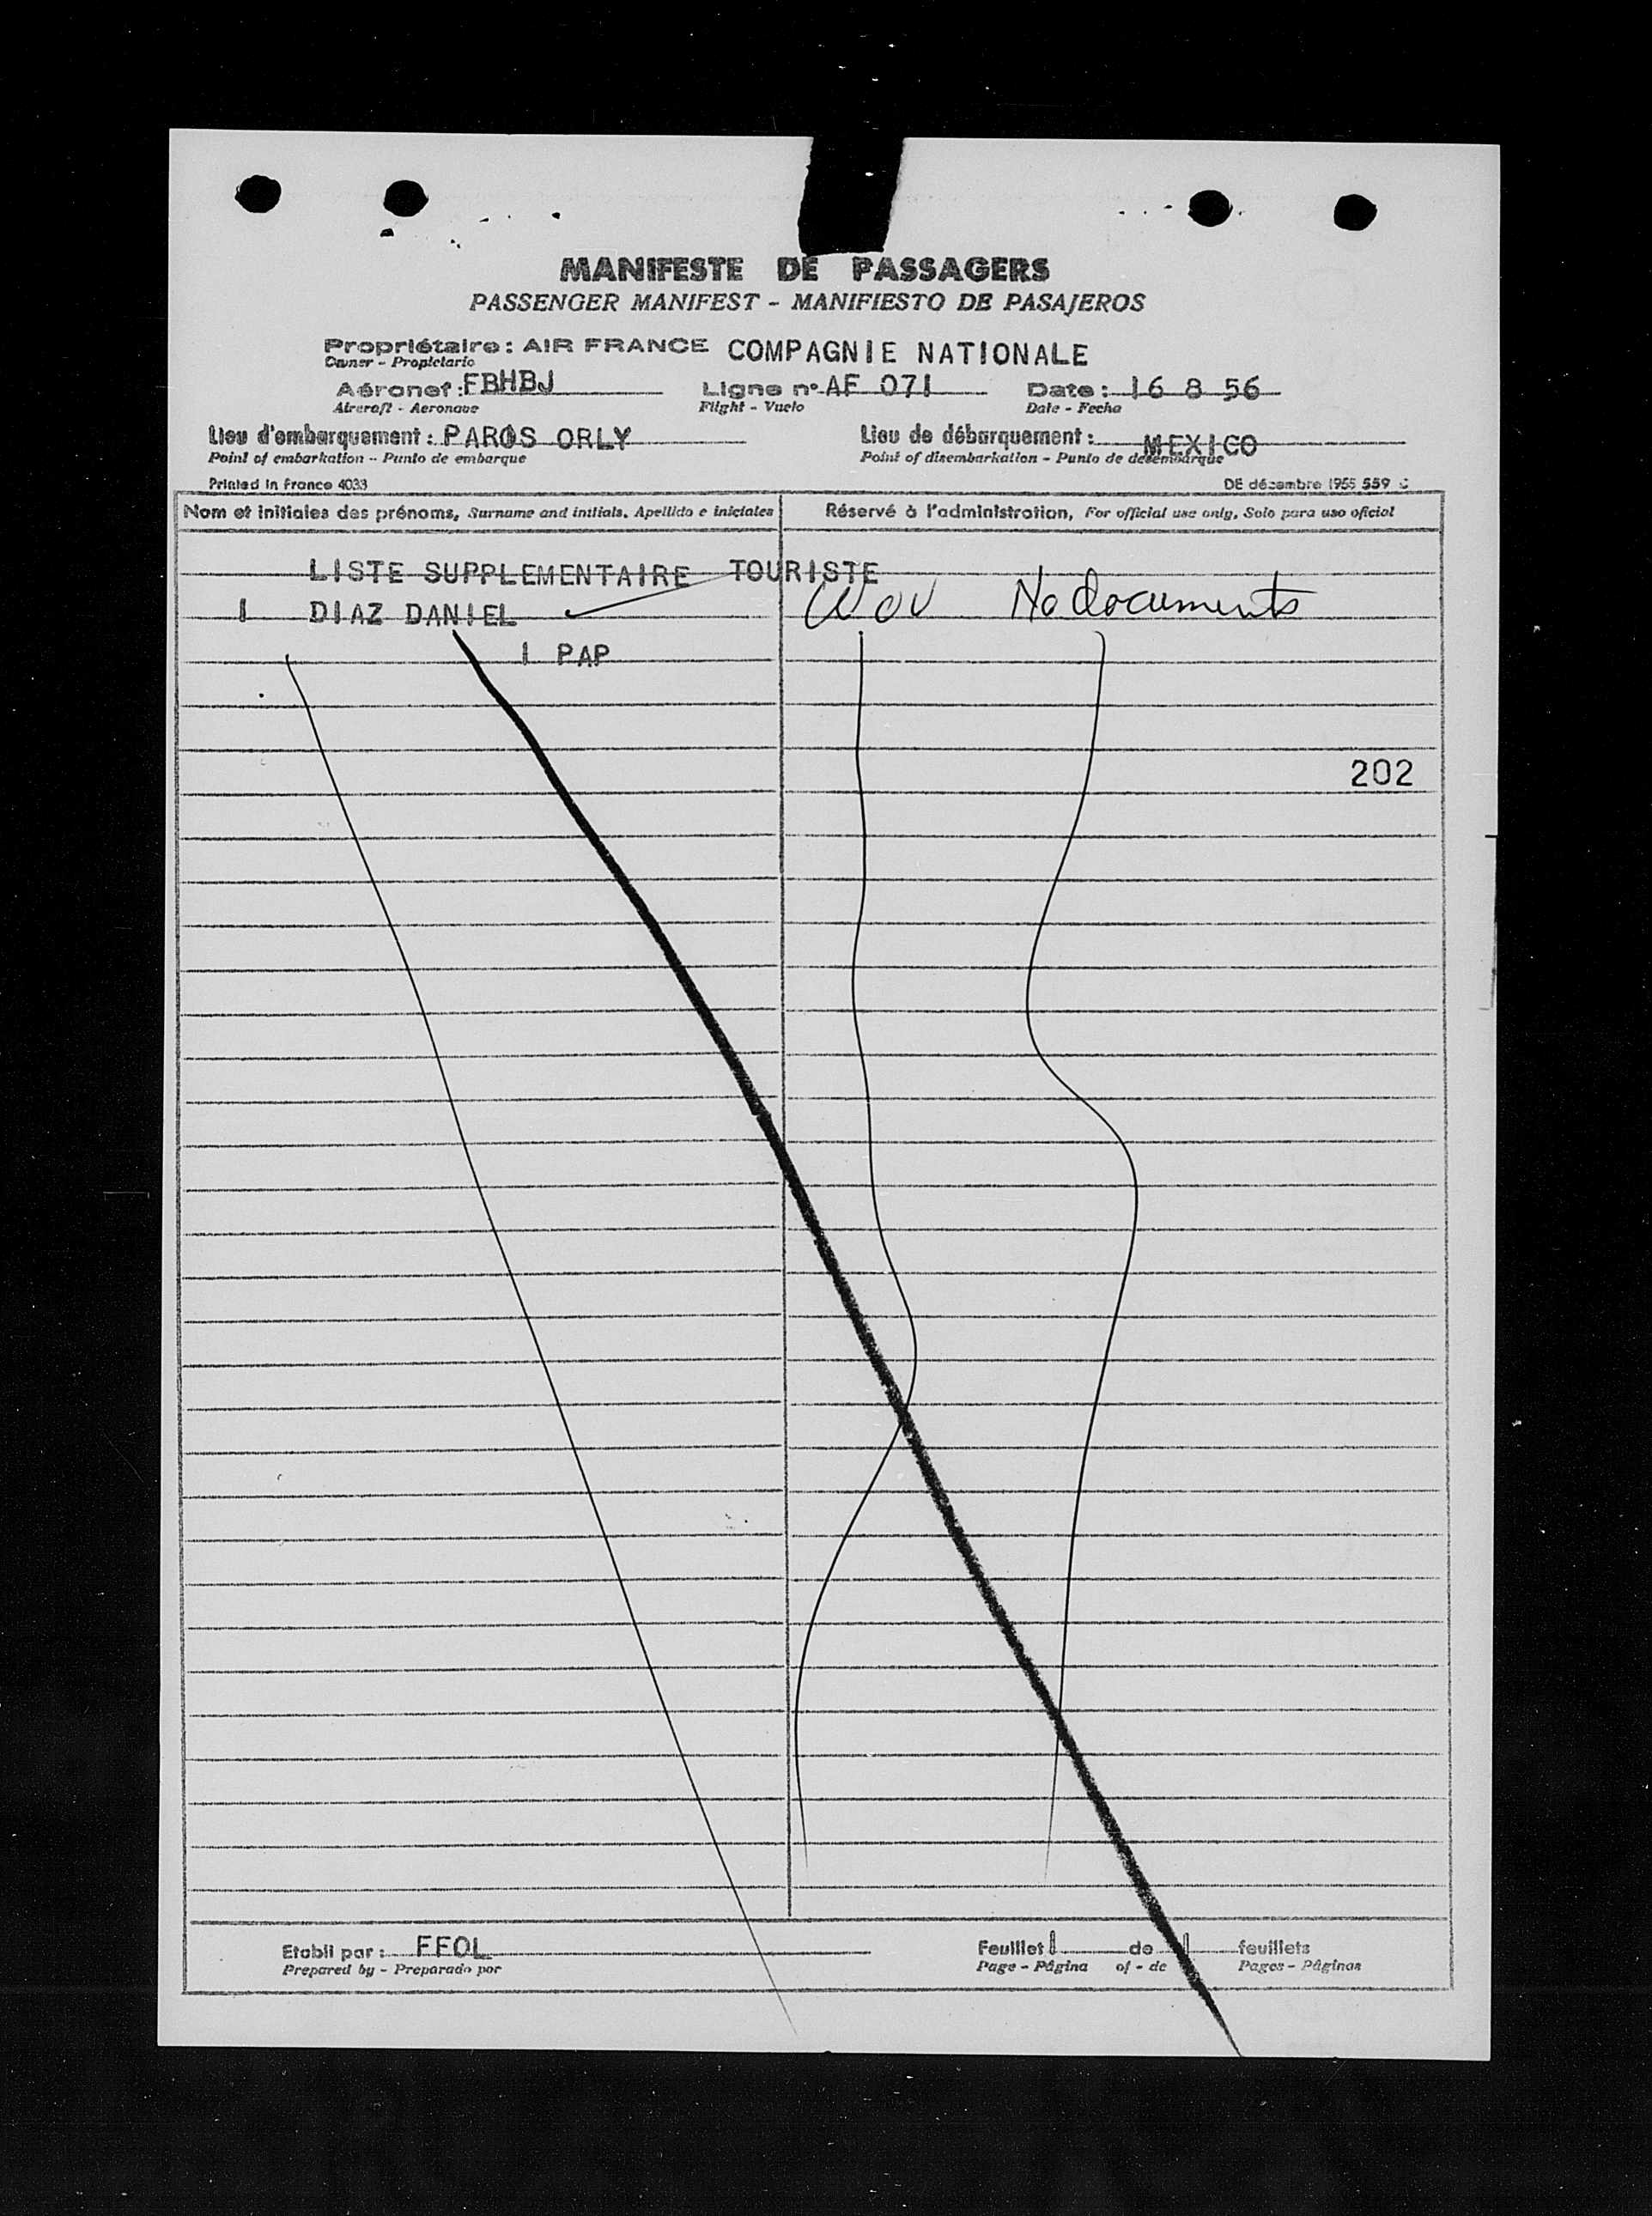 MANIFESTE DE PASSAGERS
PASSENGER MANIFEST - MANIFIESTO DE PASAJEROS
Propriétaire : AIR FRANCE COMPAGNIE NATIONALE
Owner - Propietario
Aéronef : FBHBJ Ligne n° AF 071 Date : 16 8 56
Aircraft - Aeronave Flight - Vuelo Date - Fecha
Lieu d'embarquement : PAROS ORLY Lieu de débarquement : MEXICO
Point of embarkation - Punto de embarque Point of disembarkation - Punto de desembarque
Printed in France 4033 DE décembre 1955 559
Nom et initiales des prénoms, Surname and initials, Apellido e iniciales Réservé à l'administration, For official use only, Solo para uso oficial
LISTE SUPPLEMENTAIRE TOURISTE
1 DIAZ DANIEL No documents
1 PAP
202
Etabli par : FFOL Feuillet 1 de 1 feuillets
Prepared by - Preparado por Page - Página of - de Pages - Páginas